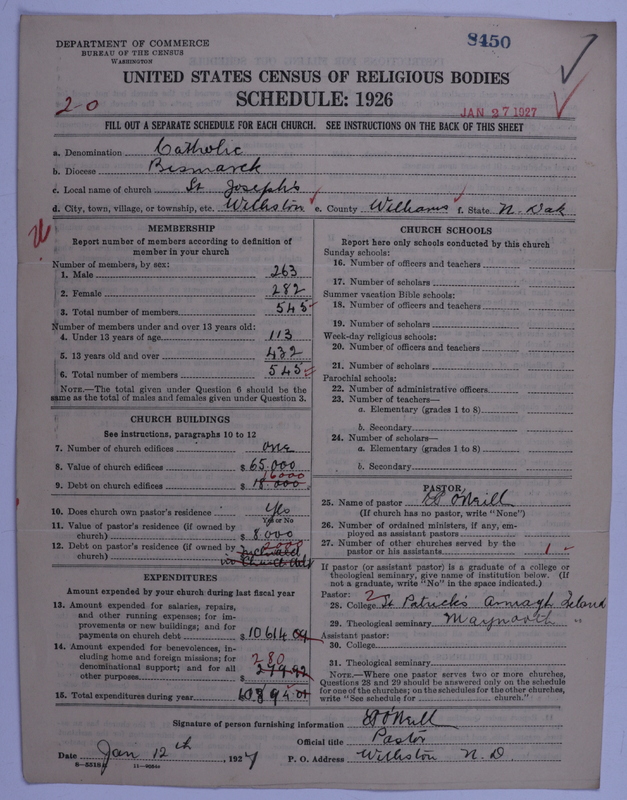 DEPARTMENT OF COMMERCE
BUREAU OF THE CENSUS
WASHINGTON
8450
UNITED STATES CENSUS OF RELIGIOUS BODIES
SCHEDULE: 1926
2-0
JAN 27 1927
FILL OUT A SEPARATE SCHEDULE FOR EACH CHURCH. SEE INSTRUCTIONS ON THE BACK OF THIS SHEET
a. Denomination Catholic
b. Diocese Bismarck
c. Local name of church St Joseph's
d. City, town, village, or township, etc. Williston e. County Williams f. State N. Dak
MEMBERSHIP
Report number of members according to definition of
member in your church
Number of members, by sex:
1. Male 263
2. Female 282
3. Total number of members 545
Number of members under and over 13 years old:
4. Under 13 years of age 113
5. 13 years old and over 432
6. Total number of members 545
NOTE.—The total given under Question 6 should be the
same as the total of males and females given under Question 3.
CHURCH BUILDINGS
See instructions, paragraphs 10 to 12
7. Number of church edifices one
8. Value of church edifices $ 65.000
16000
9. Debt on church edifices $ 18.000
10. Does church own pastor's residence yes
Yes or No
11. Value of pastor's residence (if owned by
church) $ 8.000
12. Debt on pastor's residence (if owned by
church) Included
in Church debt
EXPENDITURES
Amount expended by your church during last fiscal year
13. Amount expended for salaries, repairs,
and other running expenses; for im-
provements or new buildings; and for
payments on church debt $ 10614 09
14. Amount expended for benevolences, in-
cluding home and foreign missions; for
denominational support; and for all
other purposes $ 279.92
280
15. Total expenditures during year 10894.01
CHURCH SCHOOLS
Report here only schools conducted by this church
Sunday schools:
16. Number of officers and teachers
17. Number of scholars
Summer vacation Bible schools:
18. Number of officers and teachers
19. Number of scholars
Week-day religious schools:
20. Number of officers and teachers
21. Number of scholars
Parochial schools:
22. Number of administrative officers
23. Number of teachers—
a. Elementary (grades 1 to 8)
b. Secondary
24. Number of scholars—
a. Elementary (grades 1 to 8)
b. Secondary
PASTOR
25. Name of pastor O'Neill
(If church has no pastor, write "None")
26. Number of ordained ministers, if any, em-
ployed as assistant pastors
27. Number of other churches served by the
pastor or his assistants 1
If pastor (or assistant pastor) is a graduate of a college or
theological seminary, give name of institution below. (If
not a graduate, write "No" in the space indicated.)
Pastor: 2
28. College St Patrick's Armagh Ireland
29. Theological seminary Maynooth
Assistant pastor:
30. College
31. Theological seminary
NOTE.—Where one pastor serves two or more churches,
Questions 28 and 29 should be answered only on the schedule
for one of the churches; on the schedules for the other churches,
write "See schedule for church."
Signature of person furnishing information O'Neill
Official title Pastor
Date Jan 12th, 1927 P. O. Address Williston N. D.
8-5518
11-9034